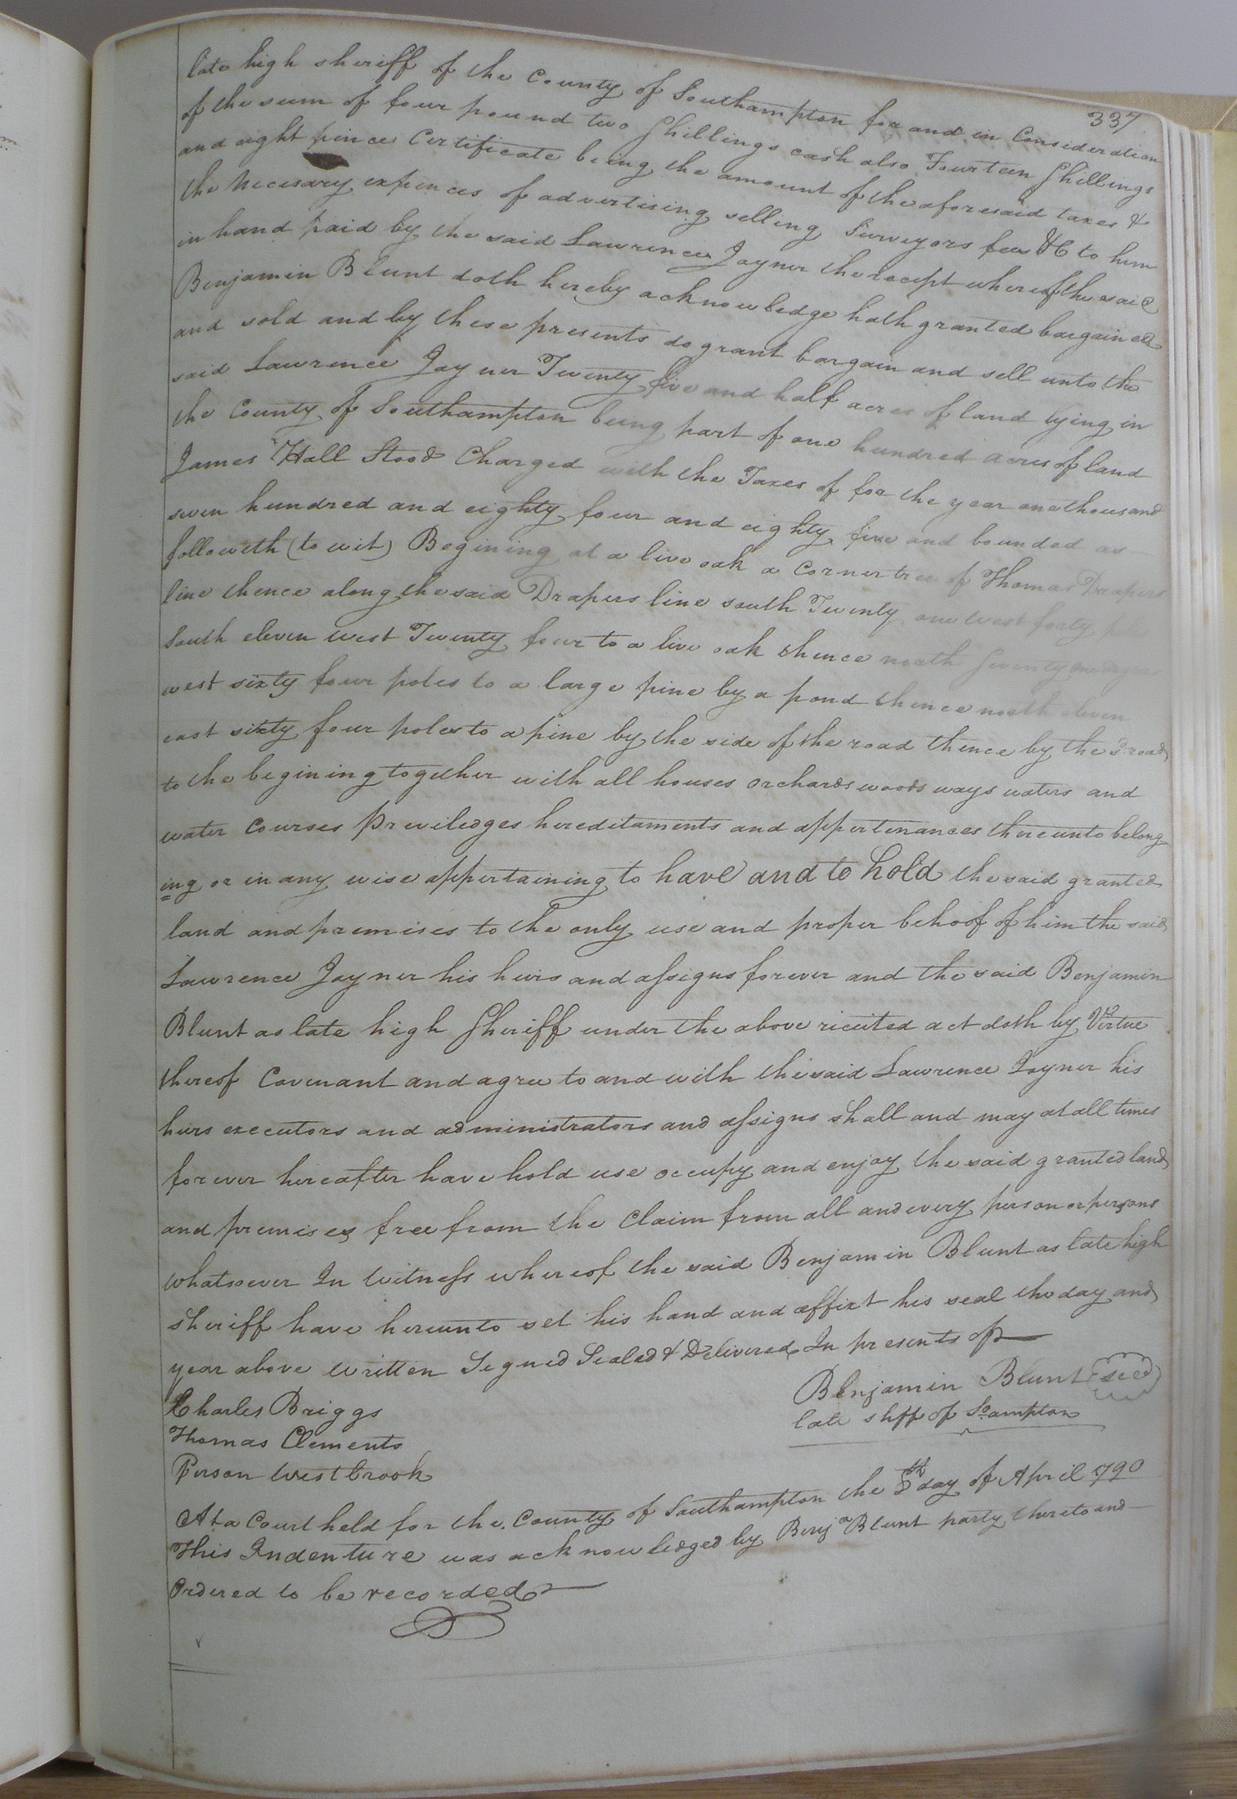 337
late high sheriff of the County of Southampton for and in Consideration
of the sum of four pound two Shillings cash also Fourteen Shillings
and eight pence Certificate being the amount of the aforesaid taxes &
the Necessary expences of advertising selling Surveyors fees &C to him
in hand paid by the said Lawrence Joyner the receipt whereof the said
Benjamin Blunt doth hereby acknowledge hath granted bargained
and sold and by these presents do grant bargain and sell unto the
said Lawrence Joyner Twenty five and half acres of land lying in
the County of Southampton being part of one hundred acres of land
James Hall Stood Charged with the Taxes of for the year one thousand
seven hundred and eighty four and eighty five and bounded as
followeth (to wit) Begining at a live oak a Corner tree of Thomas Drapers
line thence along the said Drapers line south Twenty one west forty
South eleven west Twenty four to a live oak thence north Seventy
west sixty four poles to a large pine by a pond thence north eleven
east sixty four poles to a pine by the side of the road thence by the sd road
to the begining together with all houses orchards woods ways waters and
water Courses Previledges hereditaments and appertenances thereunto belong
ing or in any wise appertaining to have and to hold the said granted
land and premises to the only use and proper behoof of him the said
Lawrence Joyner his heirs and assigns forever and the said Benjamin
Blunt as late high Sheriff under the above recited act doth by Virtue
thereof Covenant and agree to and with the said Lawrence Joyner his
heirs executors and administrators and assigns shall and may at all times
forever hereafter have hold use occupy and enjoy the said granted land
and premises free from the Claim from all and every person or persons
whatsoever In Witness whereof the said Benjamin Blunt as late high
Sheriff have hereunto set his hand and affixt his seal the day and
year above written Signed Sealed & Delivered In presents of
Benjamin Blunt seal
late shff of So.ampton
Charles Briggs
Thomas Clements
Person Westbrook
At a Court held for the County of Southampton the 8th day of April 1790
This Indenture was acknowledged by Benja Blunt party thereto and
Ordered to be recorded